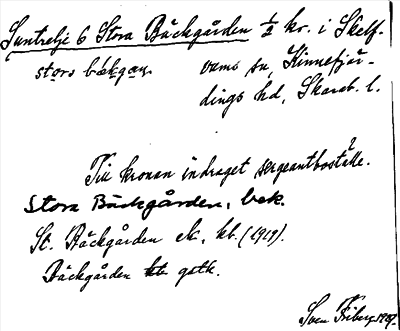 Suntrelje 6 Stora Bäckgården ½ kr. i Skelf-
stora bäkgaɲ. ums sn, Kinnefjär-
dings hd, Skarab. l.
Till kronan indraget sergeantboställe.
Stora Bäckgården, bek.
St. Bäckgården ek, kb. (1919).
Bäckgården kb. gatk.
Sven Friberg 1927.